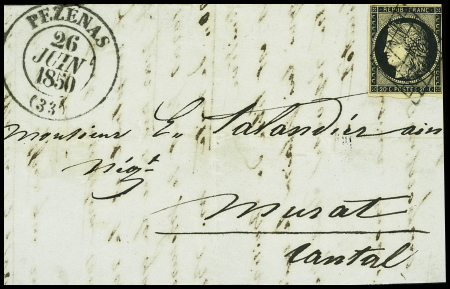 PEZENAS
26
JUIN
1850
(33)
REPUB. FRANC.
20 C. POSTES 20 C.
Monsieur E. Talandier ainé
Négt
Murat
Cantal